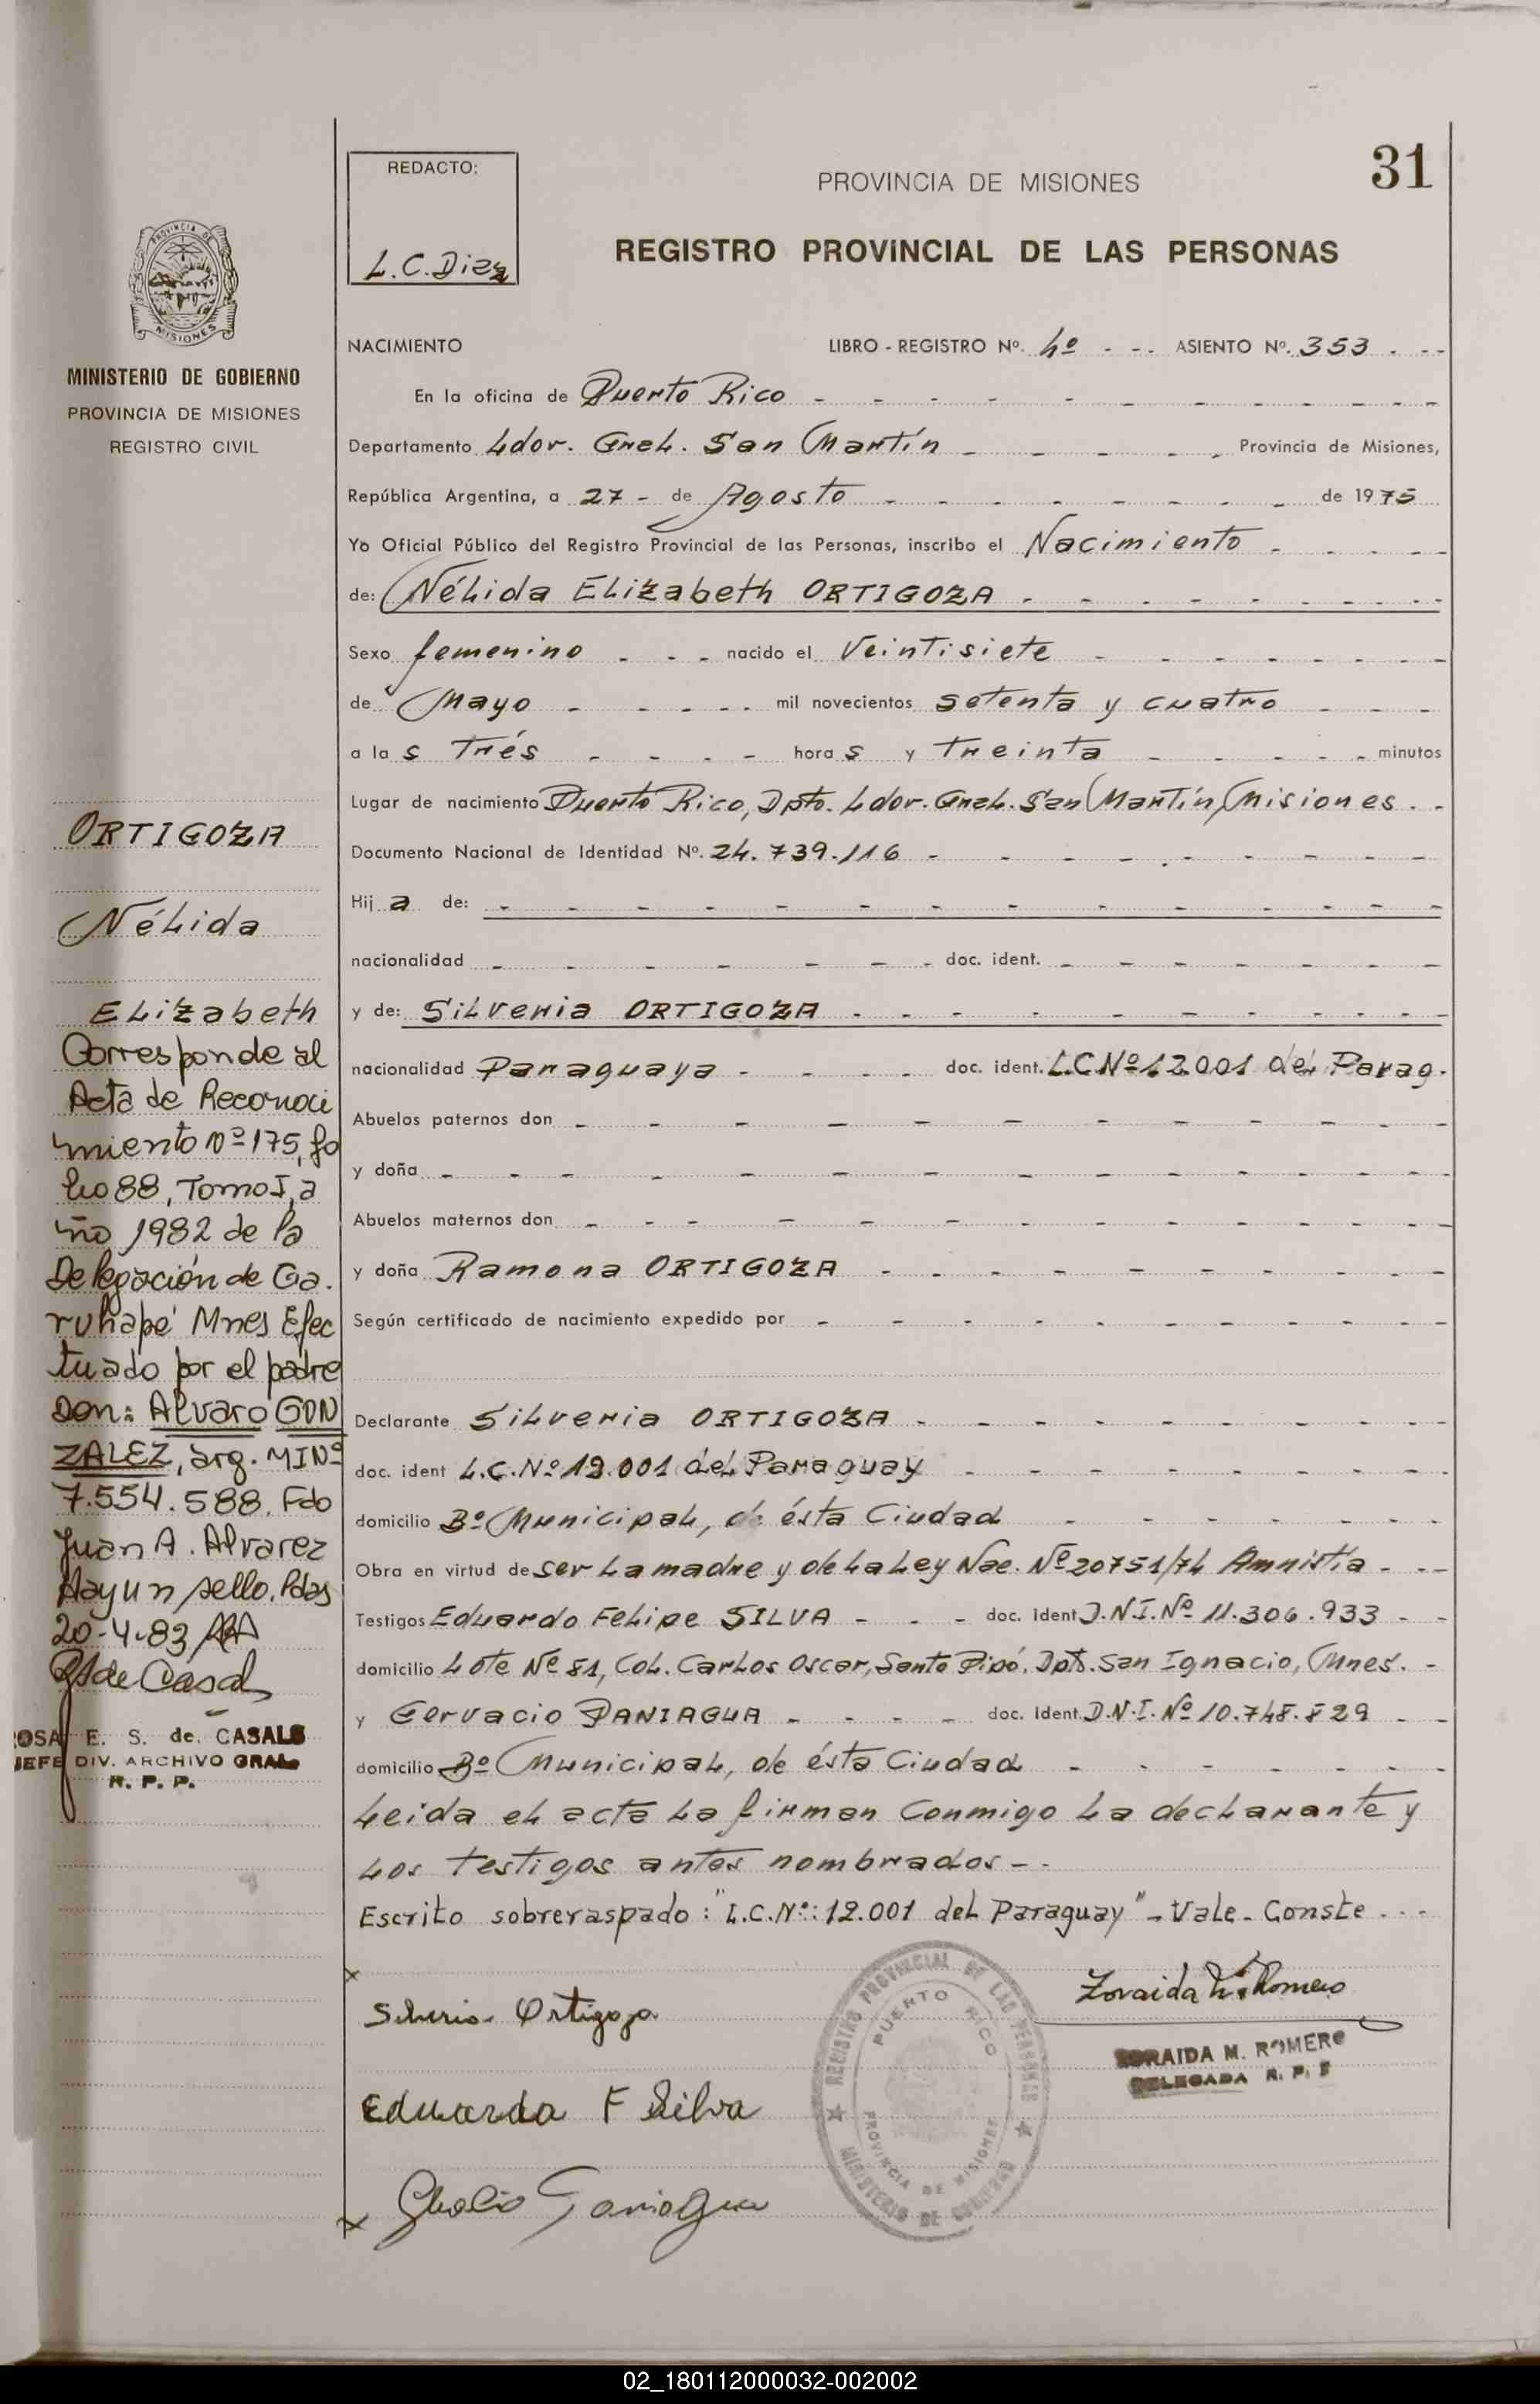 31
REDACTO:
L.C. Diez
PROVINCIA DE MISIONES
REGISTRO PROVINCIAL DE LAS PERSONAS
PROVINCIA DE
MISIONES
MINISTERIO DE GOBIERNO
PROVINCIA DE MISIONES
REGISTRO CIVIL
NACIMIENTO LIBRO - REGISTRO Nº. 4º - - - ASIENTO Nº. 353 - - -
En la oficina de Puerto Rico
Departamento Ldor. Gral. San Martín Provincia de Misiones,
República Argentina, a 27 - de Agosto de 1975
Yo Oficial Público del Registro Provincial de las Personas, inscribo el Nacimiento
de: Nélida Elizabeth ORTIGOZA
Sexo femenino nacido el Veintisiete
de Mayo mil novecientos setenta y cuatro
a las Trés horas y Treinta minutos
Lugar de nacimiento Puerto Rico, Dpto. Ldor. Gral. San Martín, Misiones.
Documento Nacional de Identidad Nº. 24.739.116
Hija de:
nacionalidad doc. ident.
y de: Silveria ORTIGOZA
nacionalidad Paraguaya doc. ident. L.C.Nº12.001 del Parag.
Abuelos paternos don
y doña
Abuelos maternos don
y doña Ramona ORTIGOZA
Según certificado de nacimiento expedido por
Declarante Silveria ORTIGOZA
doc. ident L.C.Nº12.001 del Paraguay
domicilio Bº Municipal, de ésta Ciudad
Obra en virtud de ser la madre y de la Ley Nac. Nº20751/74 Amnistía
Testigos Eduardo Felipe SILVA doc. ident D.N.I.Nº 11.306.933
domicilio Lote Nº 81, Col. Carlos Oscar, Santo Pipó, Dpto. San Ignacio, Mnes.
y Gervacio PANIAGUA doc. ident. D.N.I. Nº 10.748.829
domicilio Bº Municipal, de ésta Ciudad
Leida el acta la firman conmigo la declarante y
los testigos antes nombrados - -
Escrito sobreraspado: "L.C.Nº: 12.001 del Paraguay" - Vale - Conste
ORTIGOZA
Nélida
Elizabeth
Corresponde al
Acta de Reconoci
miento Nº175, fo
lio 88, Tomo I, a
ño 1982 de la
Delegación de Ga.
ruhapé Mnes Efec
tuado por el padre
Don: Alvaro GON
ZALEZ, arg. MINº
7.554.588. Fdo
Juan A. Alvarez
Hay un sello. Pdas
20-4-83
ROSA E. S. de CASALS
JEFE DIV. ARCHIVO GRAL.
R. P. P.
Silveria Ortigoza
Eduardo F Silva
Zoraida M. Romero
ZORAIDA M. ROMERO
DELEGADA R. P. P
REGISTRO PROVINCIAL DE LAS PERSONAS
PUERTO RICO
PROVINCIA DE MISIONES
MINISTERIO DE GOBIERNO
02_180112000032-002002